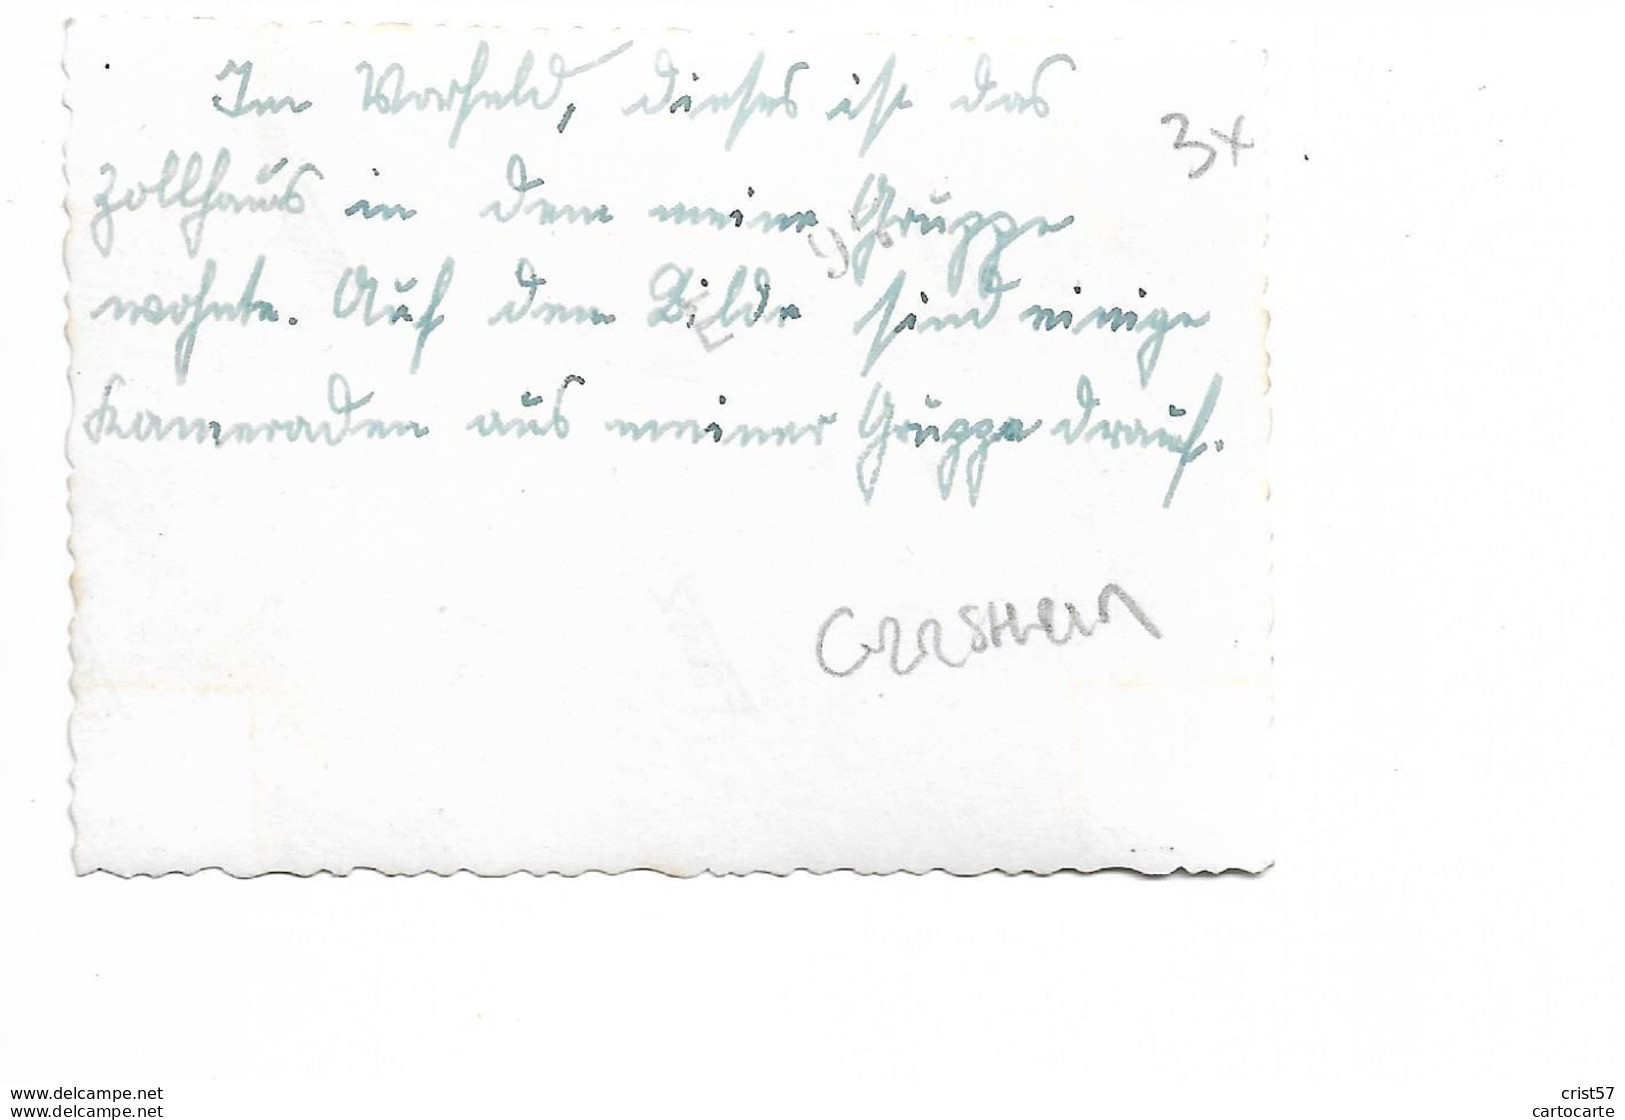 Im Vorfeld, dieses ist das
3x
Zollhaus in dem meine Gruppe
wohnte. Auf dem Bilde sind einige
Kameraden aus meiner Gruppe drauf.
www.delcampe.net
www.delcampe.net
crist57
cartocarte